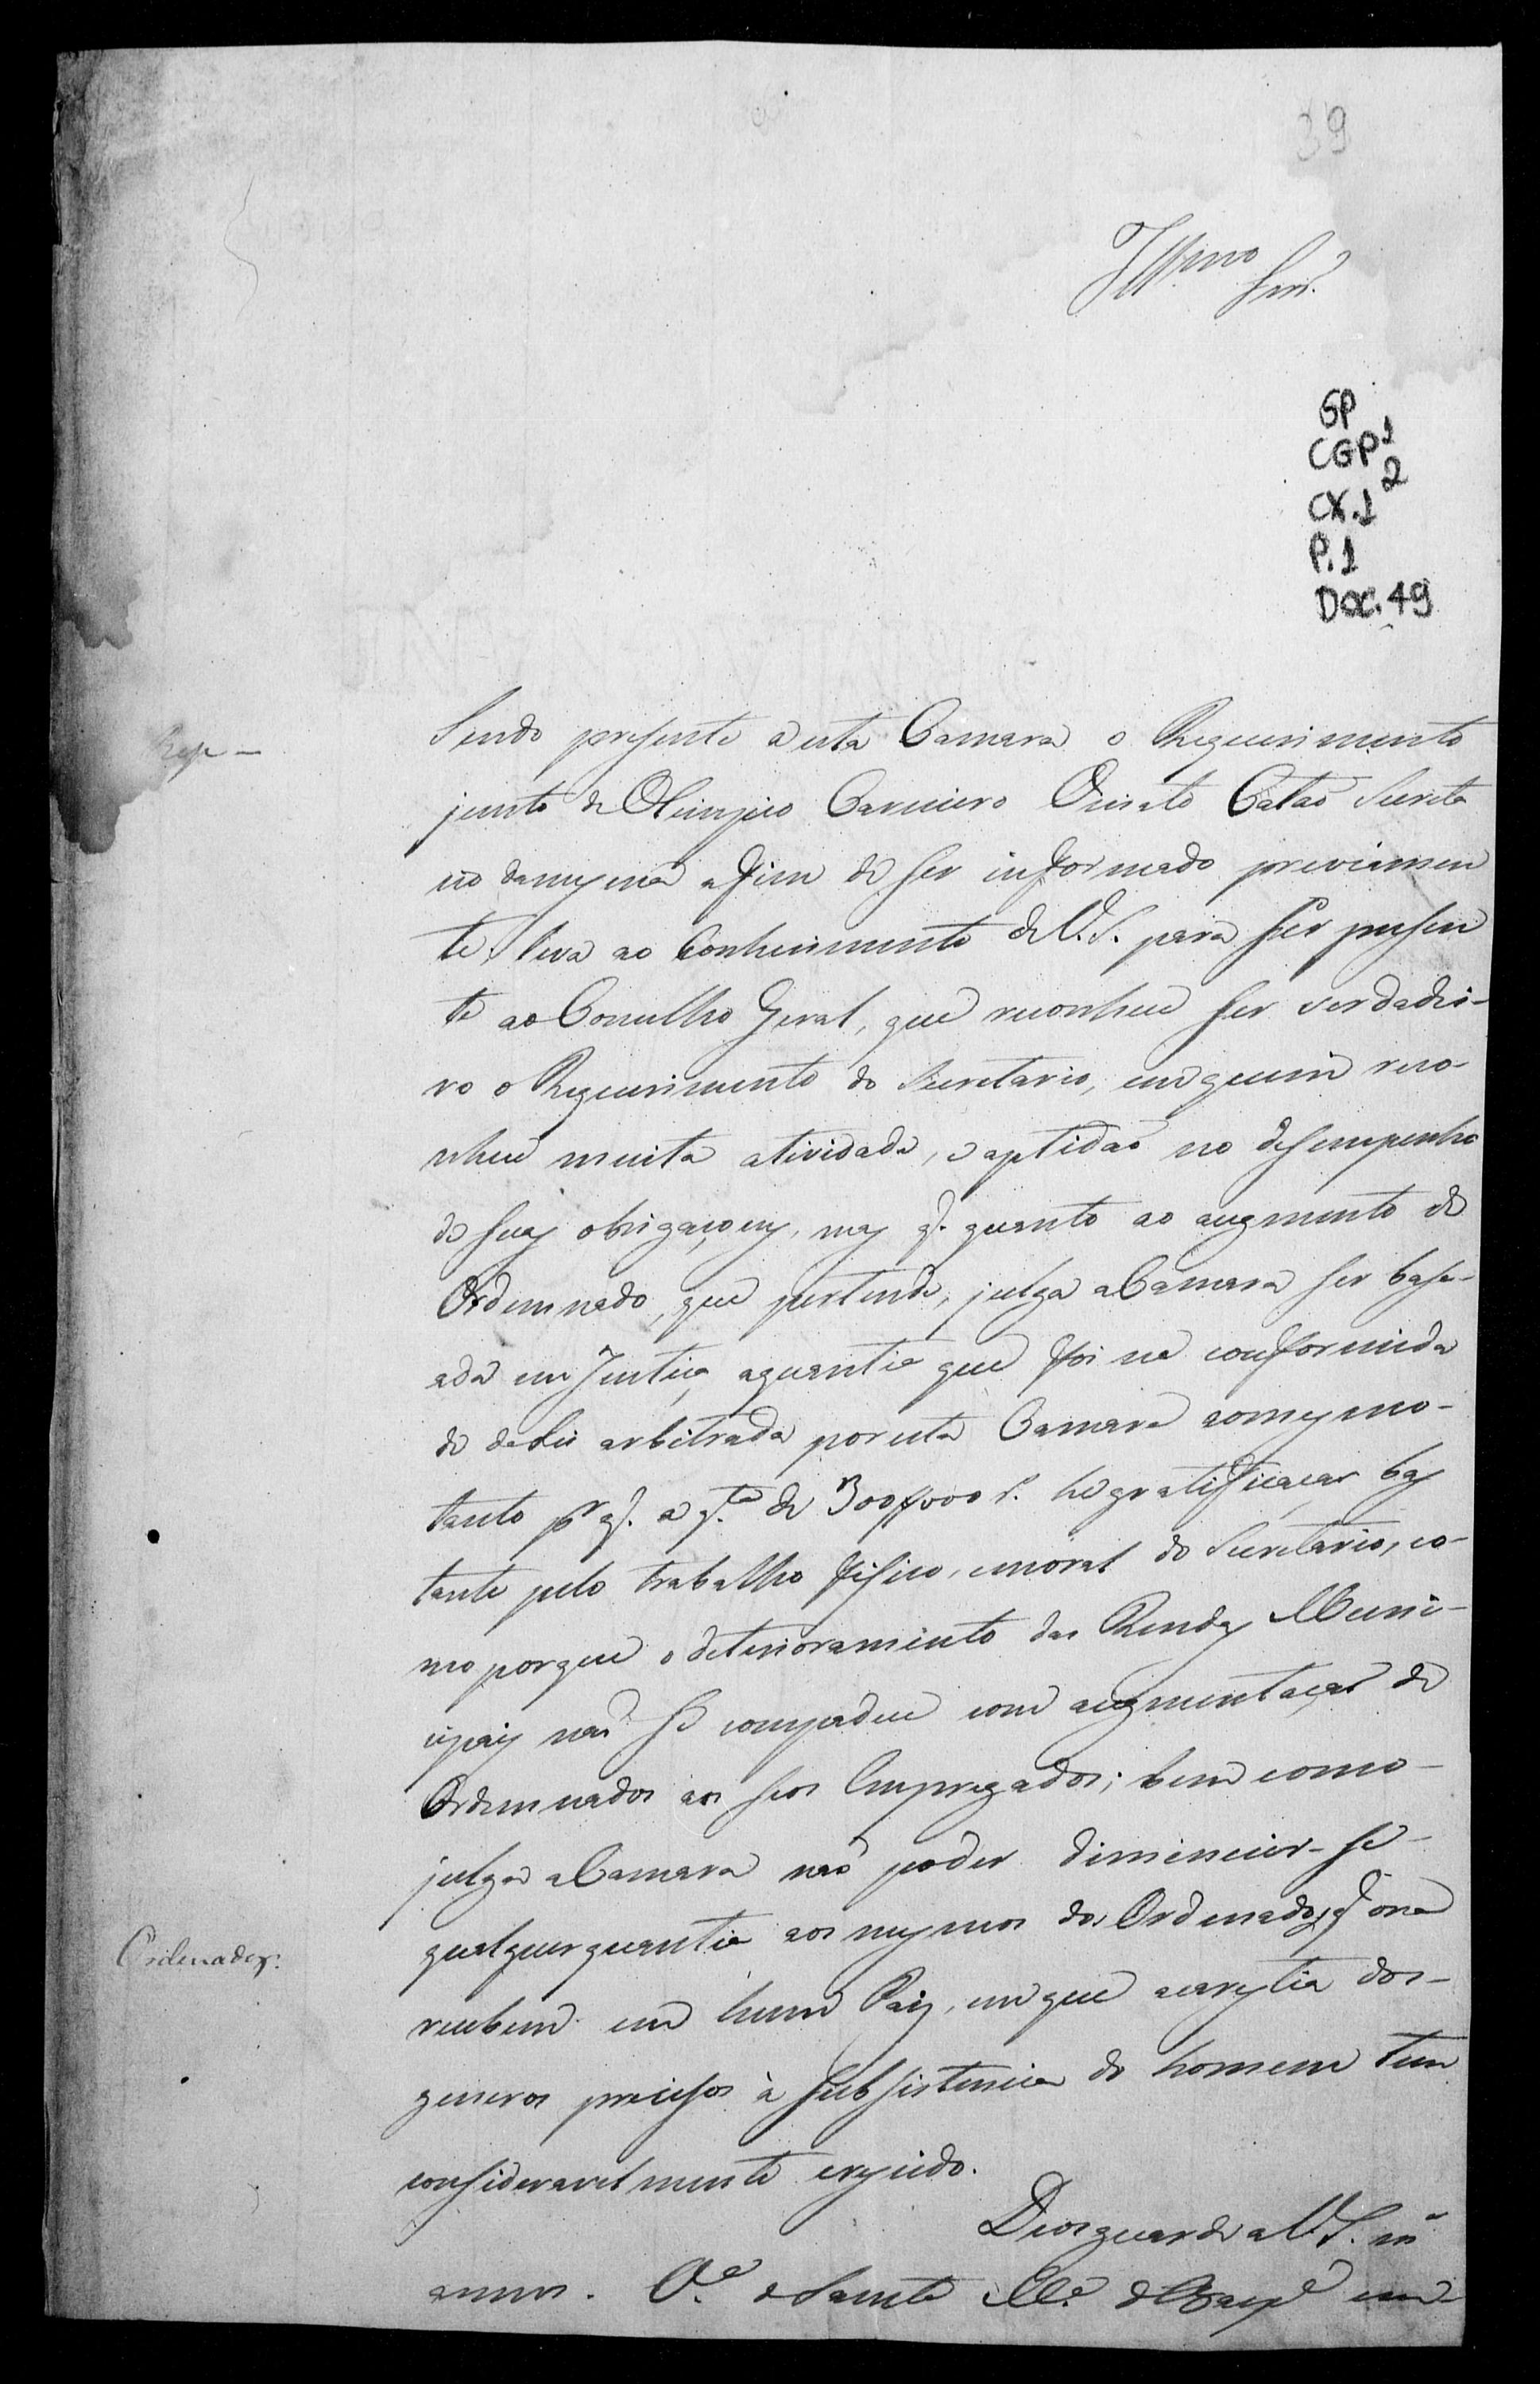 39
Illmo Snr.
GP
CGP 1
CX.1 2
P.1
Doc. 49
Sendo presente a esta Camara o Requerimento
junto de Olimpio Carneiro Cataõ Secreta
rio da mesma afim de ser informado previamen
te, leva ao Conhecimento de V.S. para ser presen
te ao Concelho Geral, que reconhece ser verdadei-
ro o Requerimento do Secretario, em quem reco-
nhece muita atividade, e aptidaõ no desempenho
de suas obrigaçoens, mas q. quanto ao augmento de
Ordennado, que pertende, julga a Camara ser base-
ada em Justiça aquantia que foi na conformida
de da Lei arbitrada por esta Camara
tanto p.r q. a q.ta de 300$000 r. he gratificaçaõ bas
tante pelo trabalho fisico, e moral do Secretario, co-
mo porque o deterioramento das Rendas Muni-
cipais naõ se compadece com augmentaçaõ de
Ordennados aos seos Empregados; bem como
julga a Camara naõ poder diminuir-se
qualquer quantia aos mesmos dos Ordenados, q ora
Ordenados:
recebem em hum Paiz, em que a carestia dos
generos precisos à subsistencia do homem tem
consideravelmente crescido.
Deos guarde a V.S. m.s
annos. V.a de Santo de Baep.e em